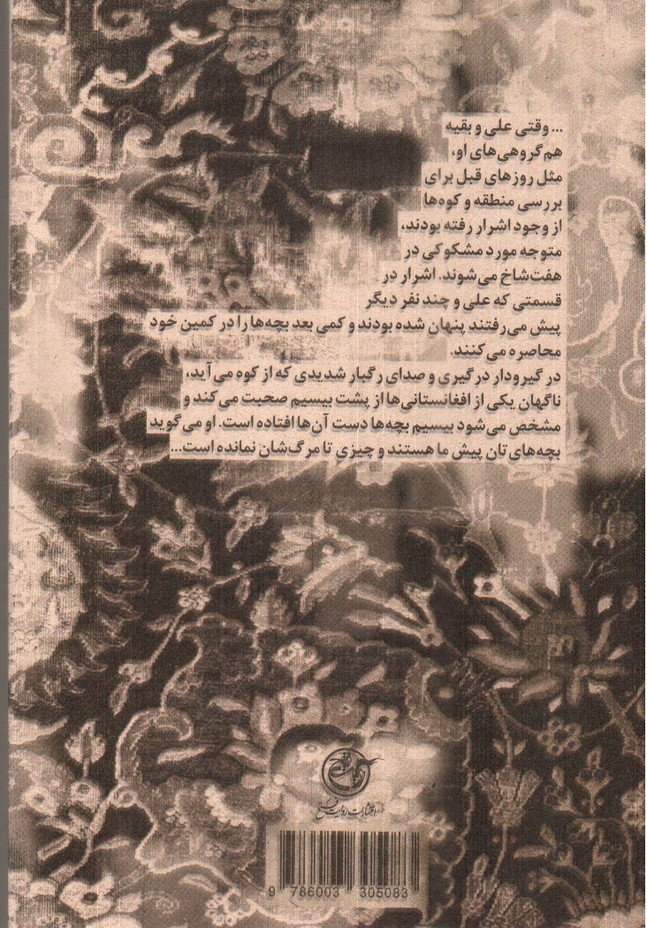 ... وقتی علی و بقیه
هم‌گروهی‌های او،
مثل روزهای قبل برای
بررسی منطقه و کوه‌ها
از وجود اشرار رفته بودند،
متوجه مورد مشکوکی در
هفت‌شاخ می‌شوند. اشرار در
قسمتی که علی و چند نفر دیگر
پیش می‌رفتند پنهان شده بودند و کمی بعد بچه‌ها را در کمین خود
محاصره می‌کنند.
در گیرودار درگیری و صدای رگبار شدیدی که از کوه می‌آید،
ناگهان یکی از افغانستانی‌ها از پشت بیسیم صحبت می‌کند و
مشخص می‌شود بیسیم بچه‌ها دست آن‌ها افتاده است. او می‌گوید
بچه‌های تان پیش ما هستند و چیزی تا مرگ‌شان نمانده است...
انتشارات روایت فتح
9 786003 305083